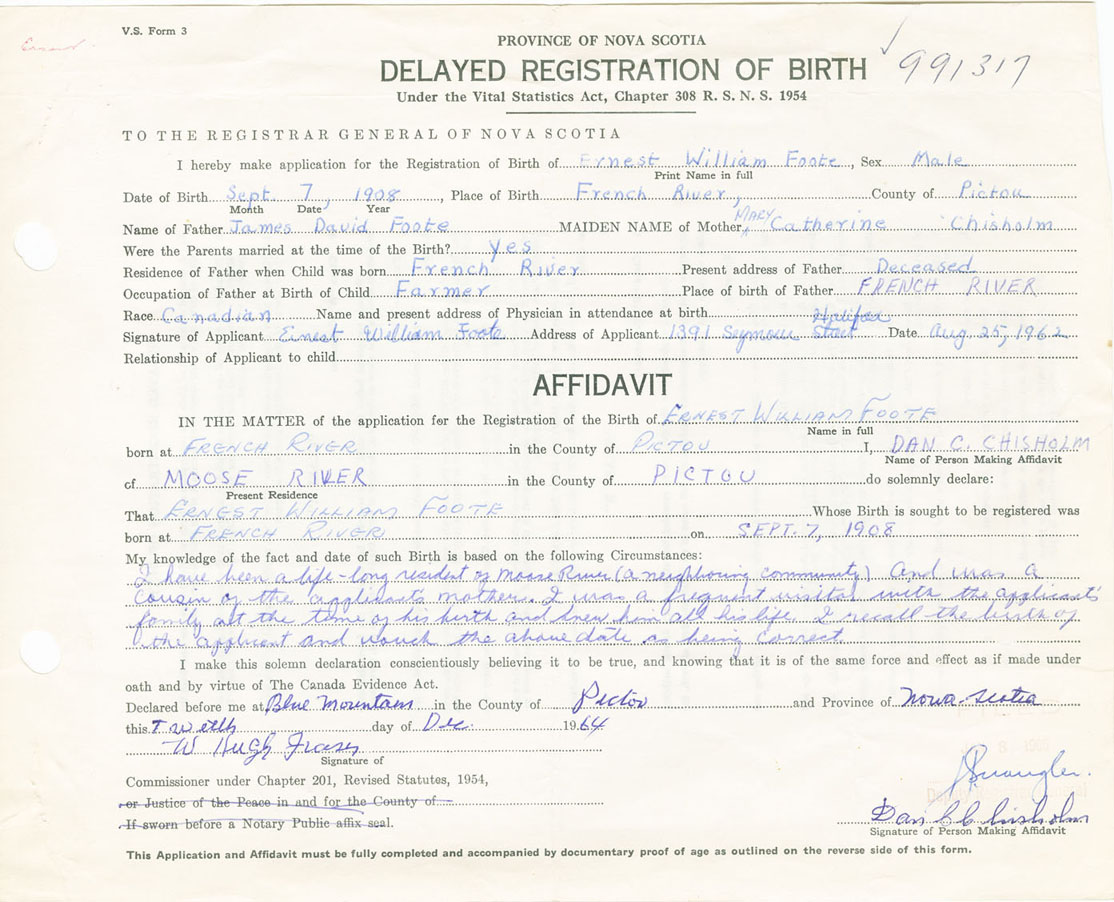 V.S. Form 3
PROVINCE OF NOVA SCOTIA
991317
DELAYED REGISTRATION OF BIRTH
Under the Vital Statistics Act, Chapter 308 R. S. N. S. 1954
TO THE REGISTRAR GENERAL OF NOVA SCOTIA
I hereby make application for the Registration of Birth of Ernest William Foote, Sex Male
Print Name in full
Date of Birth Sept. 7, 1908, Place of Birth French River, County of Pictou
Month Date Year
Name of Father James David Foote MAIDEN NAME of Mother MARY Catherine Chisholm
Were the Parents married at the time of the Birth? Yes
Residence of Father when Child was born French River Present address of Father Deceased
Occupation of Father at Birth of Child Farmer Place of birth of Father FRENCH RIVER
Race Canadian Name and present address of Physician in attendance at birth
Signature of Applicant Ernest William Foote Address of Applicant 1391 Seymour Street Halifax Date Aug 25, 1962
Relationship of Applicant to child
AFFIDAVIT
IN THE MATTER of the application for the Registration of the Birth of ERNEST WILLIAM FOOTE
Name in full
born at FRENCH RIVER in the County of PICTOU I, DAN C. CHISHOLM
Name of Person Making Affidavit
of MOOSE RIVER in the County of PICTOU do solemnly declare:
Present Residence
That ERNEST WILLIAM FOOTE Whose Birth is sought to be registered was
born at FRENCH RIVER on SEPT. 7, 1908
My knowledge of the fact and date of such Birth is based on the following Circumstances:
I have been a life-long resident of Moose River (a neighboring community) And was a
cousin of the applicants mother. I was a frequent visitor with the applicants'
family at the time of his birth and knew him all his life. I recall the birth of
the applicant and vouch the above date as being correct
I make this solemn declaration conscientiously believing it to be true, and knowing that it is of the same force and effect as if made under
oath and by virtue of The Canada Evidence Act.
Declared before me at Blue Mountain in the County of Pictou and Province of Nova Scotia
this Twelth day of Dec. 1964
W Hugh Fraser
Signature of
Commissioner under Chapter 201, Revised Statutes, 1954,
or Justice of the Peace in and for the County of
If sworn before a Notary Public affix seal.
Dan C Chisholm
Signature of Person Making Affidavit
This Application and Affidavit must be fully completed and accompanied by documentary proof of age as outlined on the reverse side of this form.